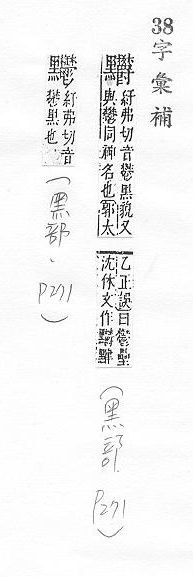 38字彙補
紆弗切音鬱黑貌又
與鬱同神名也郭太
乙正誤曰鬱壘
沈休文作
(黑部. P271)
紆弗切音
鬱黑也
(黑部. P271)